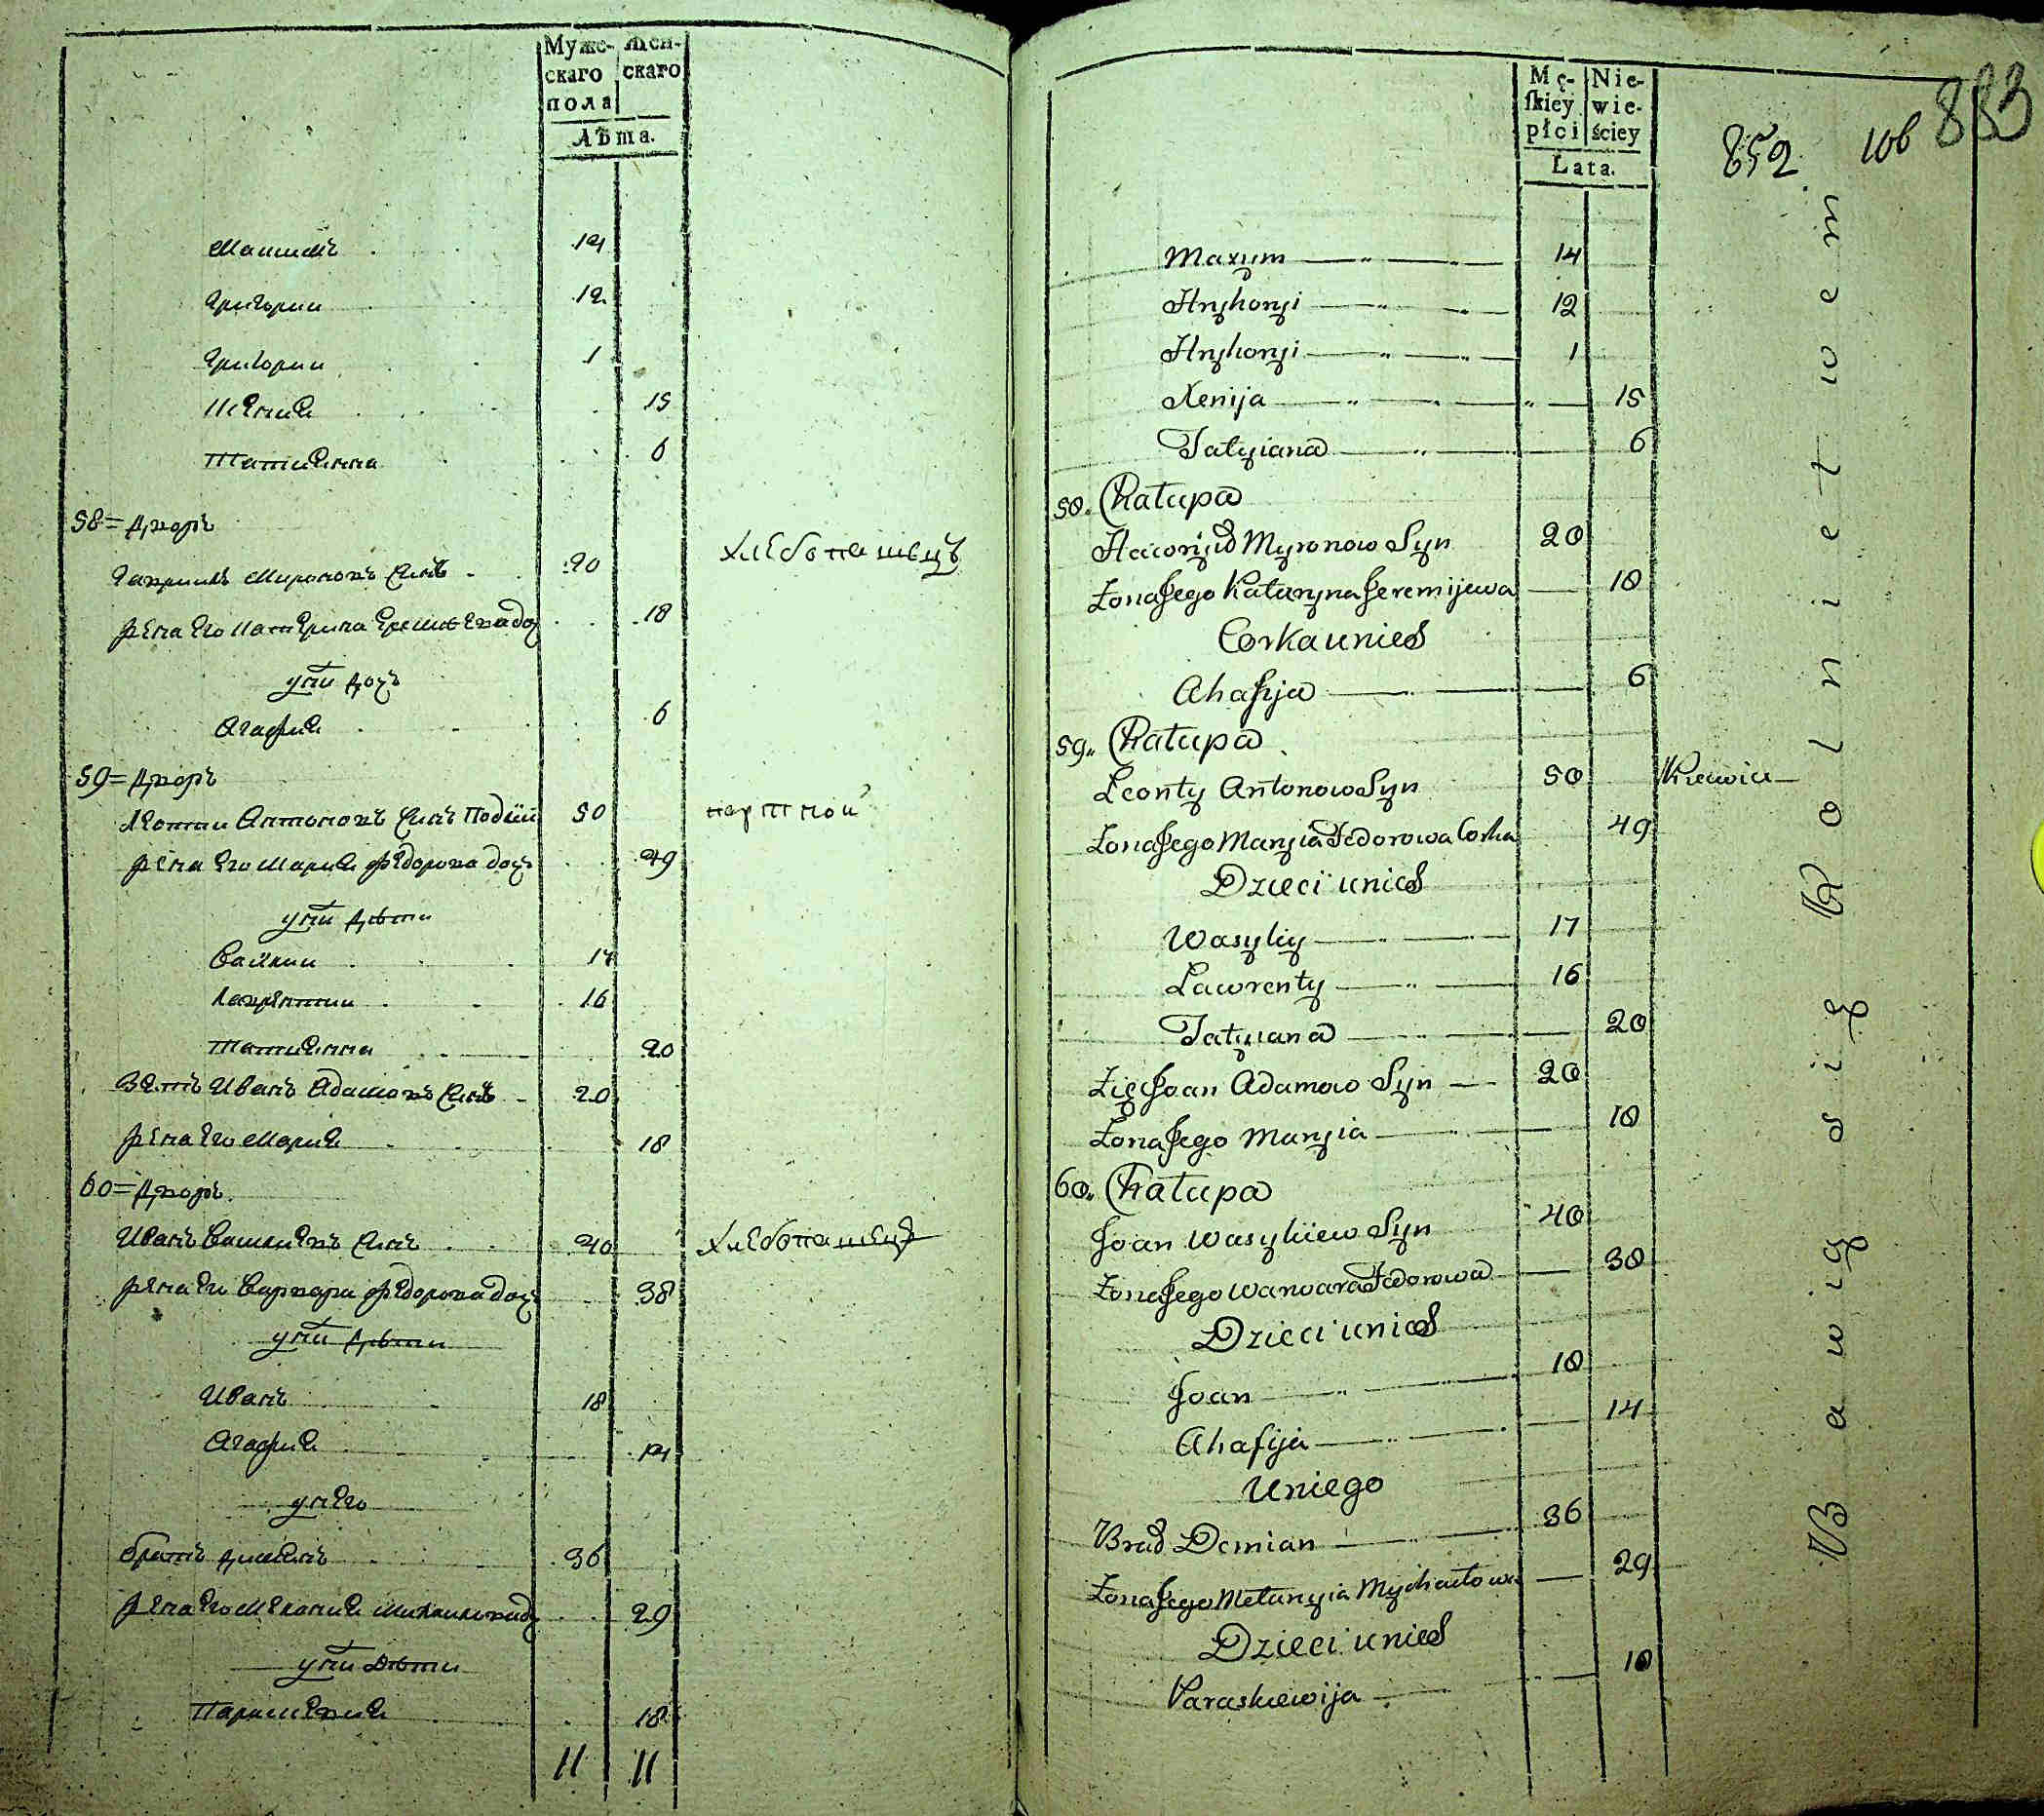 Муже-
скаго
пола
Жен-
скаго
Лѣта.
Маѯимъ 14
Григории 12
Григории 1
Ксения 15
Татиянна 6
58 = Дворъ
Гавриилъ Мироновъ Синъ 20 Хлебопашецъ
Жена Его Катерина Еремиева доч 18
у ни дочъ
Агафия 6
59 = Дворъ
Леонтии Антоновъ Синъ 50 портной
Жена Его Мария Федорова дочъ 49
у ни Дѣти
Василии 17
Лаврентии 16
Татиянна 20
Зять Иванъ Адамовъ Синъ 20
Жена Его Мария 18
60 = Дворъ
Иванъ Василиевъ Синъ 40 Хлебопашецъ
Жена Его Варвара Федорова дочъ 38
у ни Дѣти
Иванъ 18
Агафия 14
у него
братъ Димиянъ 36
Жена Его Мелания Михаилова доч 29
у ни Дѣти
Параскевия 18
11 11
Mę-
skiey
płci
Nie-
wie-
ściey
Lata.
852 106 883
Maxym 14
Hryhoryi 12
Hryhoryi 1
Xenija 15
Tatyiana 6
58. Chałupa
Hawryło Myronow Syn 20
Żona Jego Kataryna Jeremijewa 18
Corka u nich
Ahafija 6
59. Chałupa
Leonty Antonow Syn 50 Krawiec
Żona Jego Maryia Fedorowa Corka 49
Dzieci u nich
Wasyliy 17
Lawrenty 16
Tatyiana 20
Zięć Joan Adamow Syn 20
Żona Jego Maryia 18
60. Chałupa
Joan Wasyliiew Syn 40
Żona Jego Warwara Fedorowa 38
Dzieci u nich
Joan 18
Ahafija 14
U niego
Brad Demian 36
Żona Jego Melanyia Mychaiłowa 29
Dzieci u nich
Paraskiewija 18
Bawią się Rolnietwem